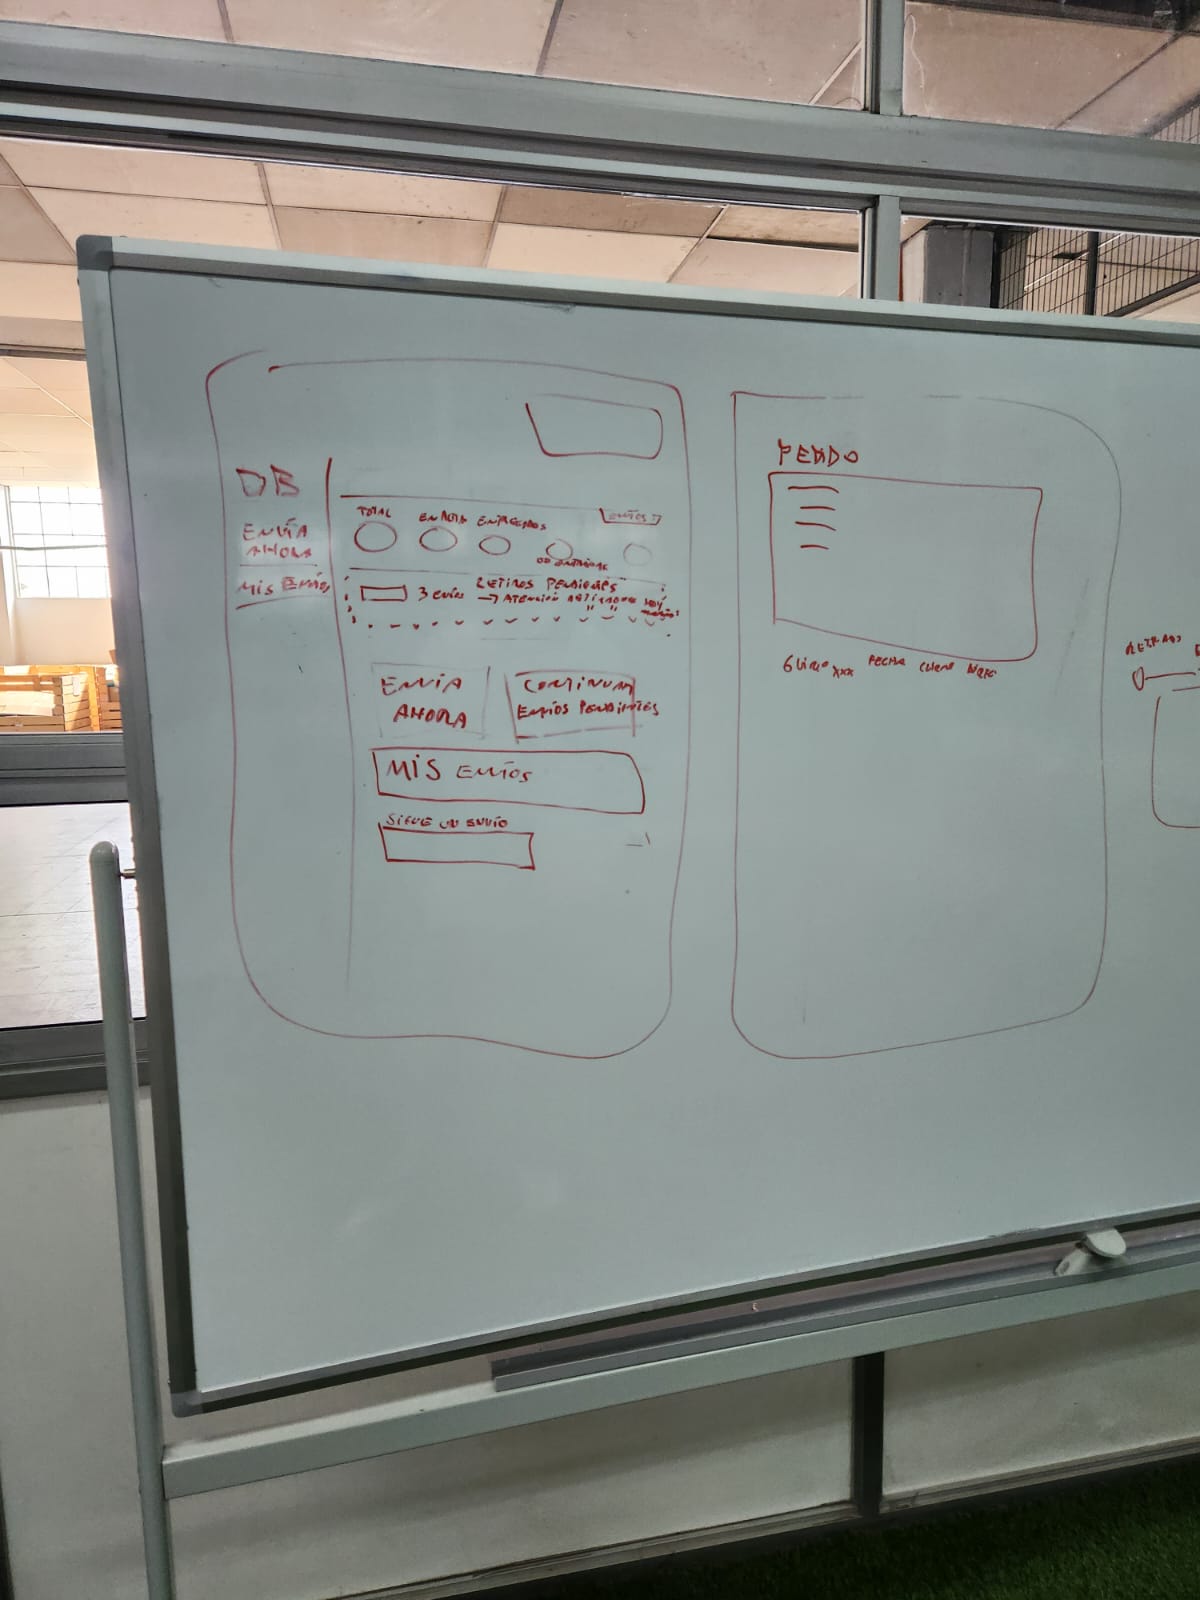 DB
ENVÍA
AHORA
MIS ENVÍOS
TOTAL
EN RUTA
ENTREGADOS
ENVÍOS
3 envíos
RETIROS PENDIENTES
→ ATENCIÓN
HOY
ENVÍA
AHORA
CONTINUAR
ENVÍOS PENDIENTES
MIS ENVÍOS
SIGUE UN ENVÍO
PEDIDO
xxx FECHA
RETIRADO